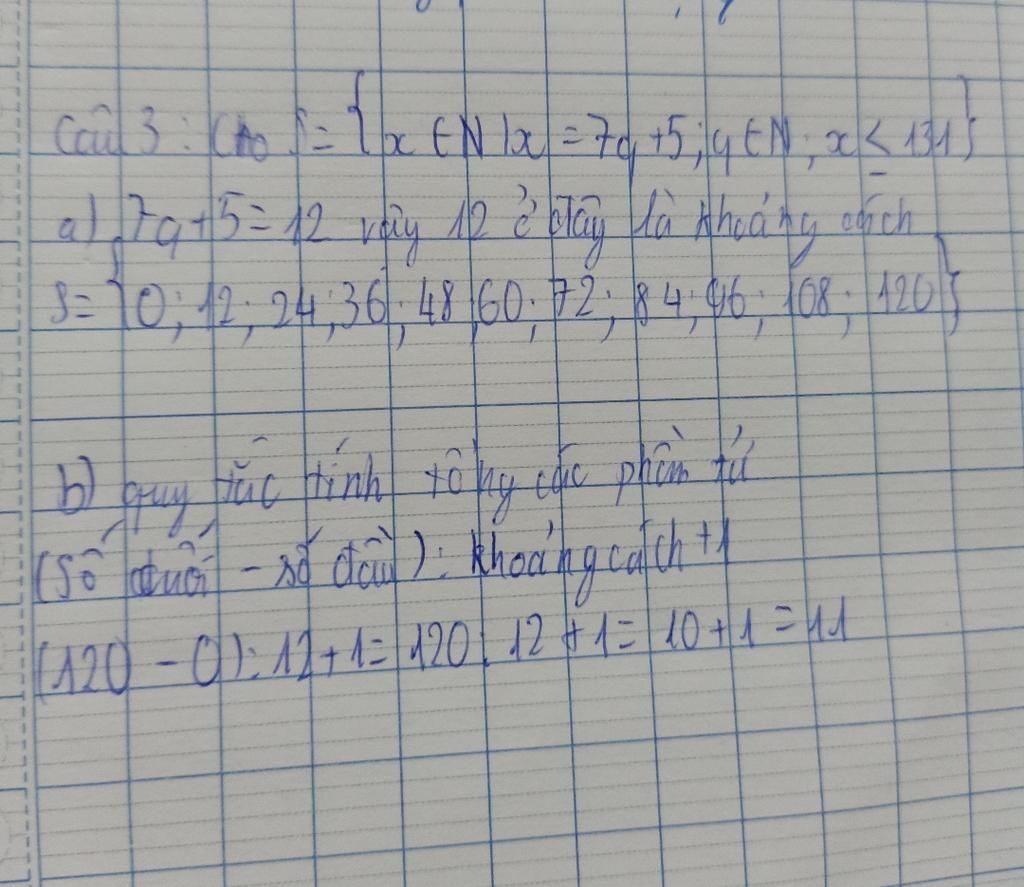 Câu 3: Cho S = { x ∈ N | x = 7q + 5; q ∈ N; x ≤ 131}
a) 7q + 5 = 12 vậy 12 ở đây là khoảng cách
S = {0; 12; 24; 36; 48; 60; 72; 84; 96; 108; 120}
b) quy tắc tính tổng các phần tử
(số cuối - số đầu) : khoảng cách + 1
(120 - 0) : 12 + 1 = 120 : 12 + 1 = 10 + 1 = 11